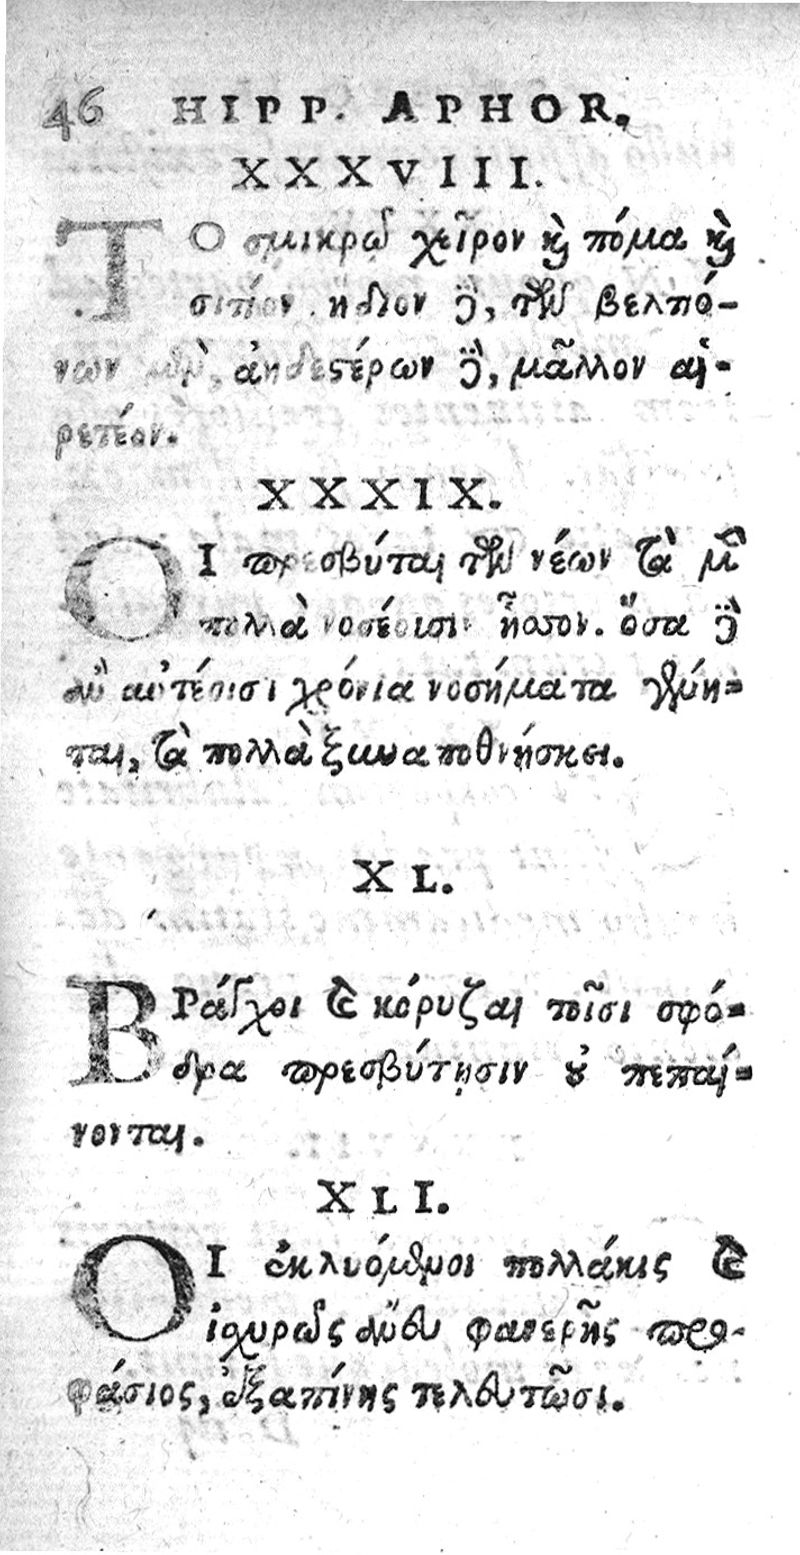 46 HIPP. APHOR.
XXXVIII.
ΤΟ σμικρῷ χεῖρον καὶ πόμα καὶ
σιτίον, ἥδιον δὲ, τῶν βελτιό-
νων μὲν, ἀηδεστέρων δὲ, μᾶλλον αἱ-
ρετέον.
XXXIX.
ΟΙ πρεσβύται τῶν νέων τὰ μὲν
πολλὰ νοσέουσιν ἧσσον. ὅσα δὲ
ἂν αὐτέοισι χρόνια νοσήματα γένη-
ται, τὰ πολλὰ ξυναποθνήσκει.
XL.
ΒΡάγχοι καὶ κόρυζαι τοῖσι σφό-
δρα πρεσβύτῃσιν οὐ πεπαί-
νονται.
XLI.
ΟΙ ἐκλυόμενοι πολλάκις καὶ
ἰσχυρῶς ἄνευ φανερῆς προ-
φάσιος, ἐξαπίνης τελευτῶσι.